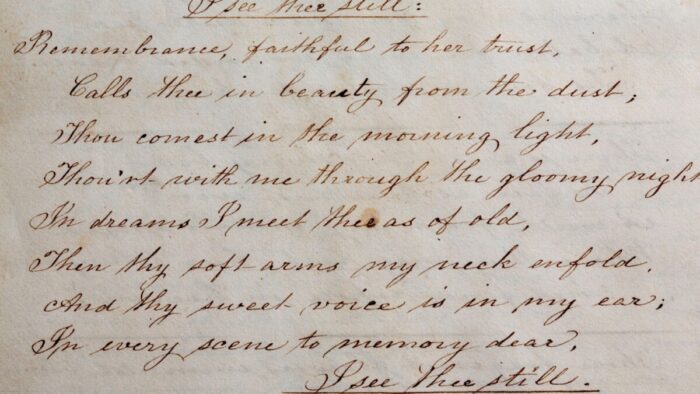 I see thee still:
Remembrance, faithful to her trust,
Calls thee in beauty from the dust;
Thou comest in the morning light,
Thou'rt with me through the gloomy night
In dreams I meet thee as of old,
Then thy soft arms my neck enfold,
And thy sweet voice is in my ear;
In every scene to memory dear,
I see thee still.